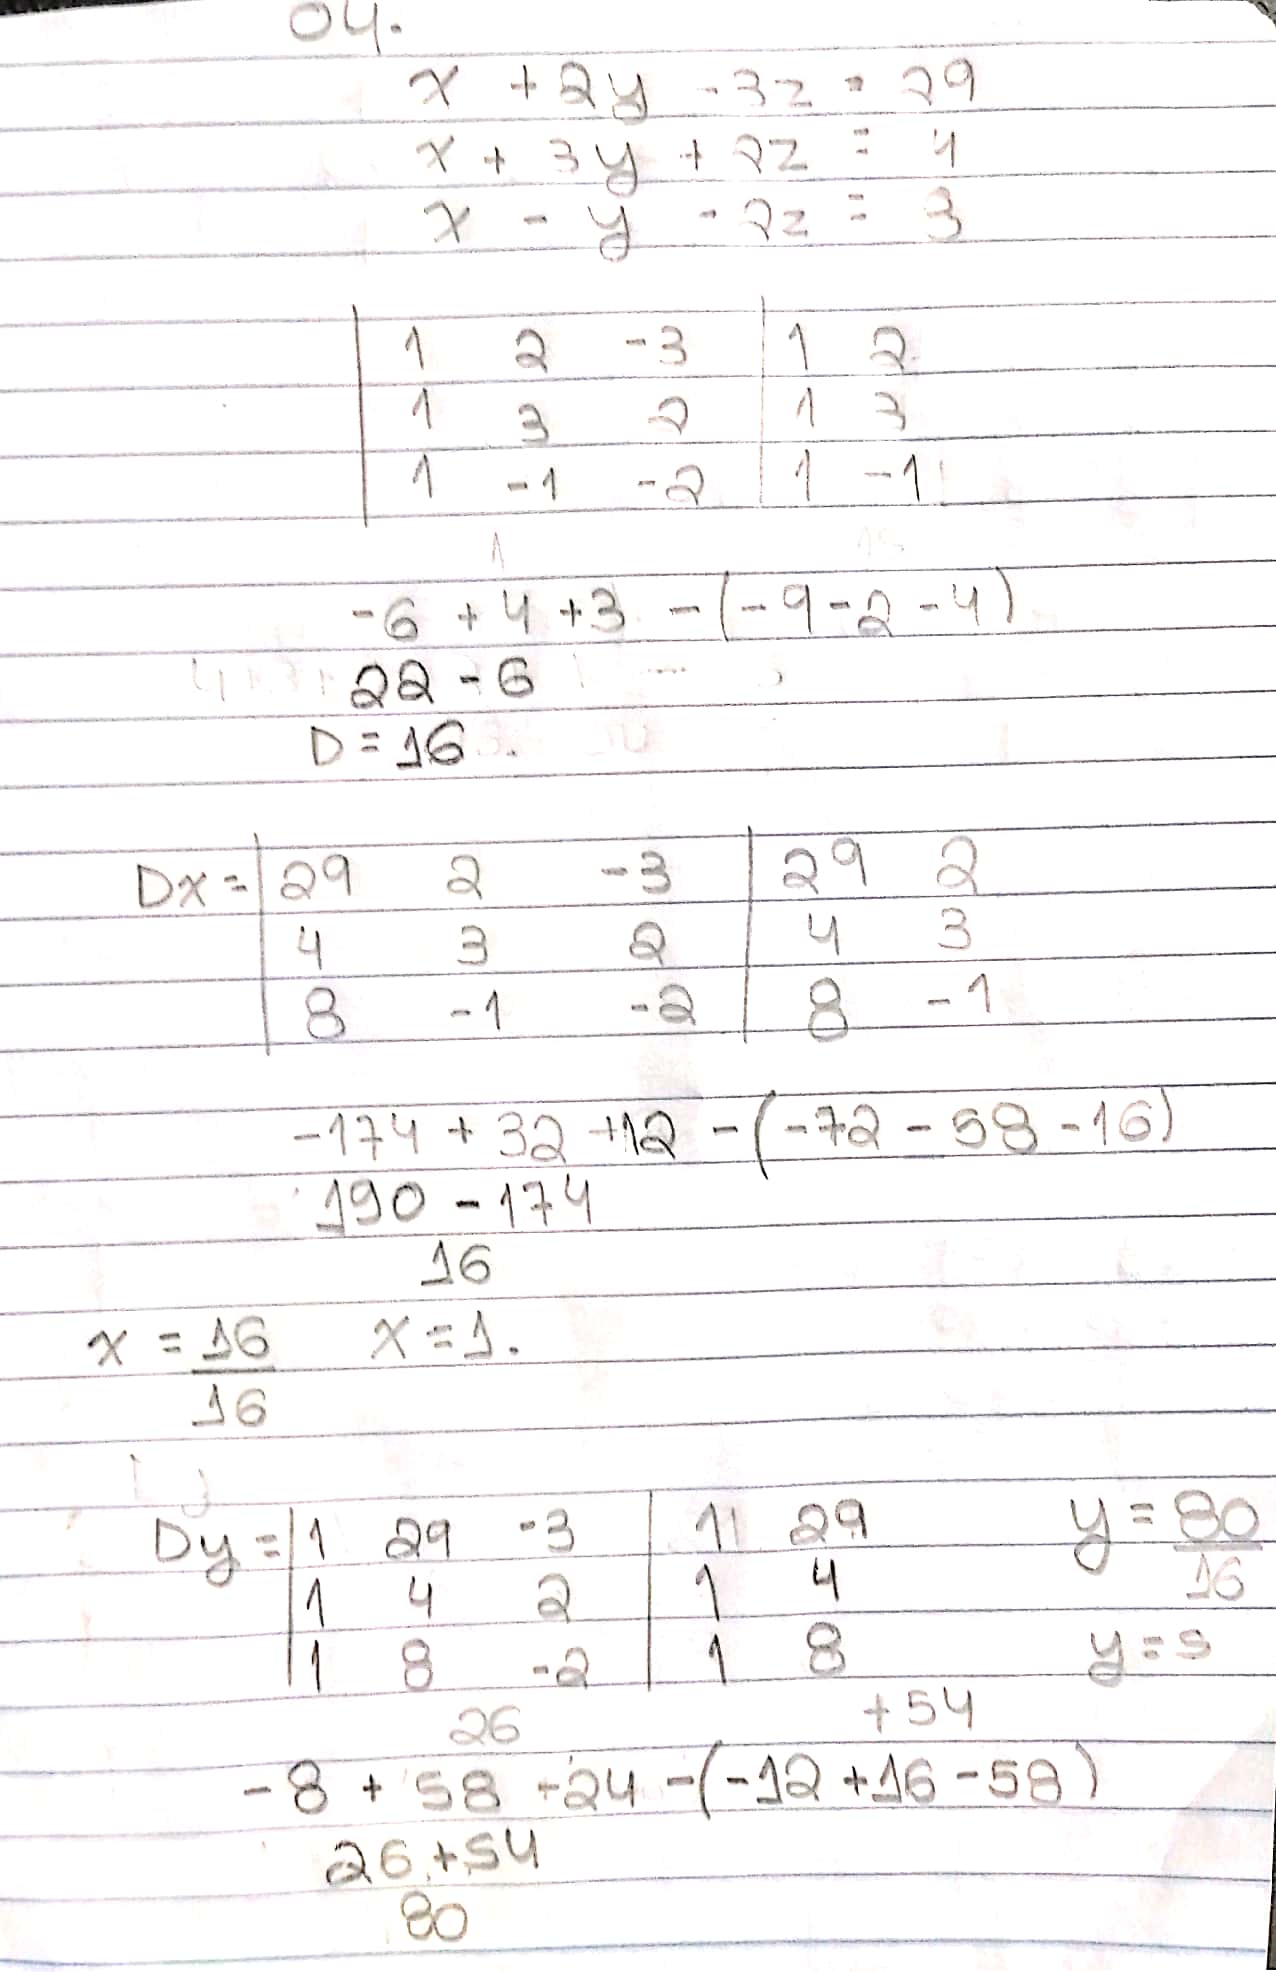 04.
x + 2y - 3z = 29
x + 3y + 2z = 4
x - y - 2z = 3
| 1 2 -3 | 1 2
| 1 3 2 | 1 3
| 1 -1 -2 | 1 -1
-6 + 4 + 3 - (-9 - 2 - 4)
22 - 6
D = 16.
Dx = | 29 2 -3 | 29 2
| 4 3 2 | 4 3
| 8 -1 -2 | 8 -1
-174 + 32 + 12 - (-72 - 58 - 16)
190 - 174
16
x = 16/16 x = 1.
Dy = | 1 29 -3 | 1 29 y = 80/16
| 1 4 2 | 1 4
| 1 8 -2 | 1 8 y = 5
26 +54
-8 + 58 - 24 - (-12 + 16 - 58)
26 + 54
80